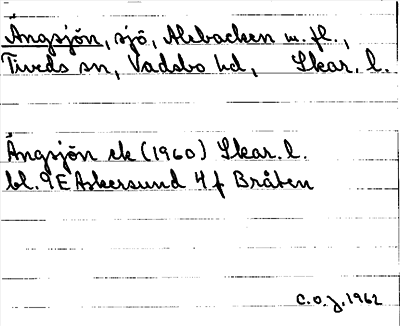 Ängsjön, sjö, Alsbacken m.fl.,
Tiveds sn, Vadsbo hd, Skar. l.
Ängsjön ek (1960) Skar. l.
bl. 9E Askersund 4f Bråten
C.O.J. 1962